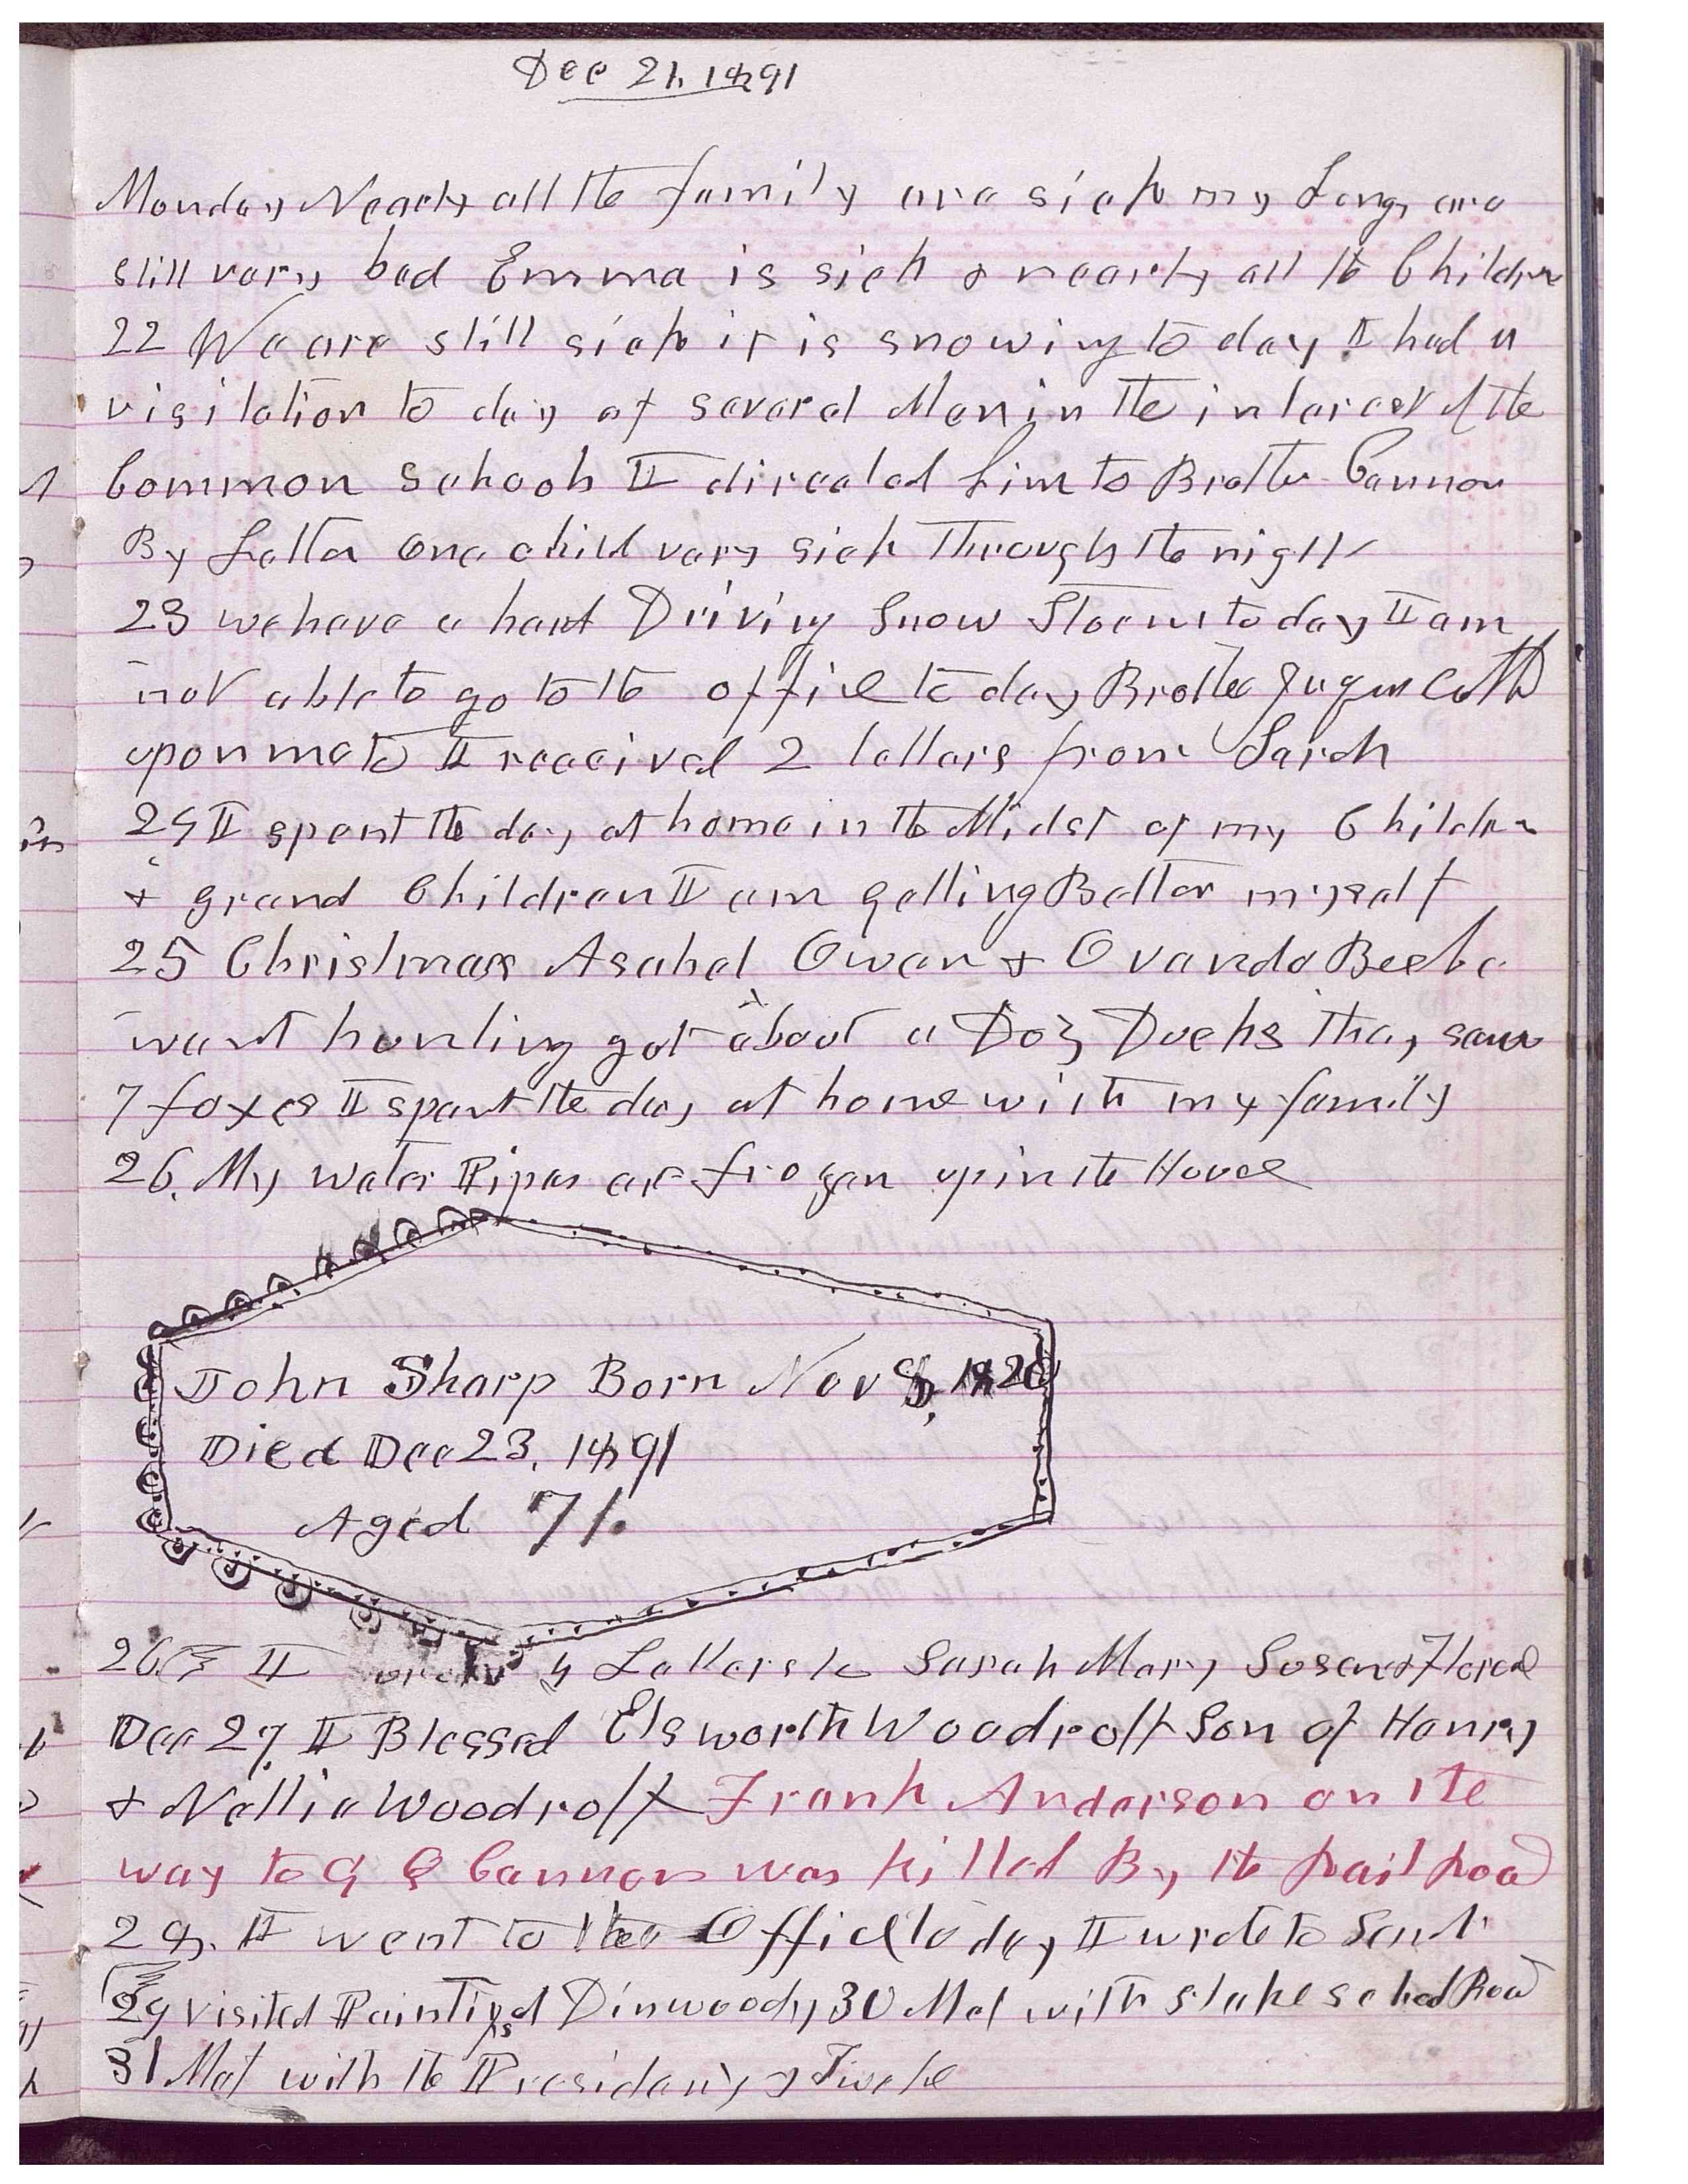 Dec 21, 1891
Monday Nearly all the family are sick my Lungs are
still vary bad Emma is sick & nearly all the Children
22 We are still sick it is snowing to day I had a
visitation to day of several Men in the interest of the
Common Schools I directed him to Brother Cannon
By Letter One child vary sick through the night
23 we have a hard Driving Snow Storm to day I am
not able to go to the office to day Brother
upon me to I received 2 letters from Sarah
24 I spent the day at home in the Midst of my Children
& grand Children I am getting Better myself
25 Christmas Asahel Owen & Ovando Beebe
went hunting got about a Doz Ducks they saw
7 foxes I spent the day at home with my family
26. My water Pipes are frozen up in the House
John Sharp Born Nov 8, 1820
Died Dec 23, 1891
Aged 71.
26 I wrote 4 Letters to Sarah Mary Susan &
Dec 27, I Blessed Elsworth Woodroff Son of Henry
& Nellie Woodroff Frank Anderson on the
way to G Q Cannon was killed By the Rail Road
28. I went to the Office to day I wrote to
29 visited Paintings at Dinwoody 30 Met with stake
31 Met with the Presidency & Twelve